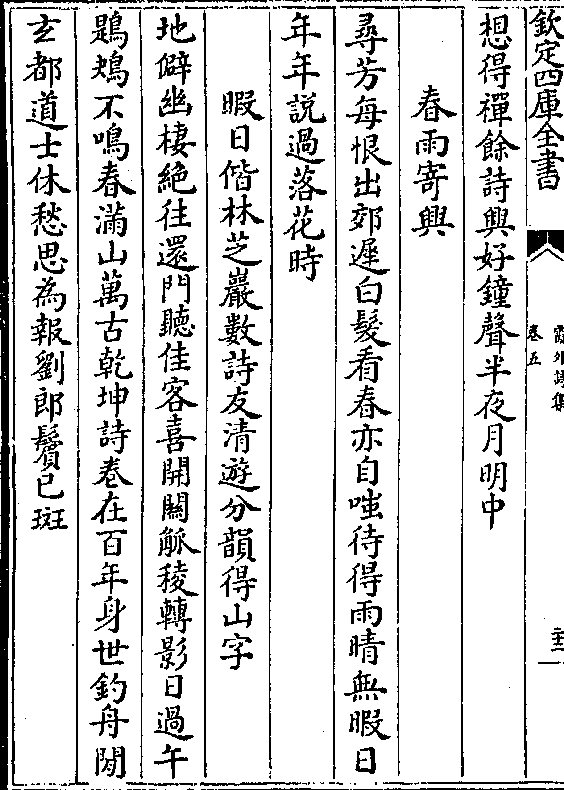 欽定四庫全書
霞外詩集
卷五
想得禪餘詩興好鐘聲半夜月明中
春雨寄興
尋芳每恨出郊遲白髮看春亦自嗤待得雨晴無暇日
年年説過落花時
暇日偕林芝巖數詩友清遊分韻得山字
地僻幽棲絶往還門聽佳客喜開關觚稜轉影日過午
鶗鴂不鳴春滿山萬古乾坤詩卷在百年身世釣舟閒
玄都道士休愁思為報劉郎鬢已斑